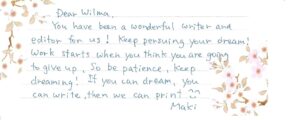 Dear Wilma,
You have been a wonderful writer and
editor for us! Keep persuing your dream!
Work starts when you think you are going
to give up, So be patience, keep
dreaming! If you can dream, you
can write, then we can print
Maki